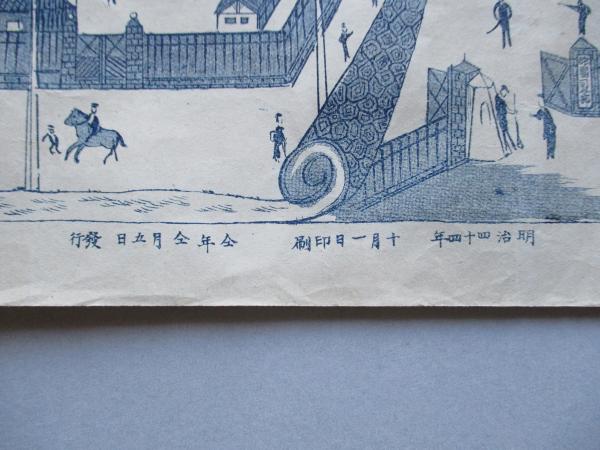 明治四十四年 十月一日印刷 仝年仝月五日 發行